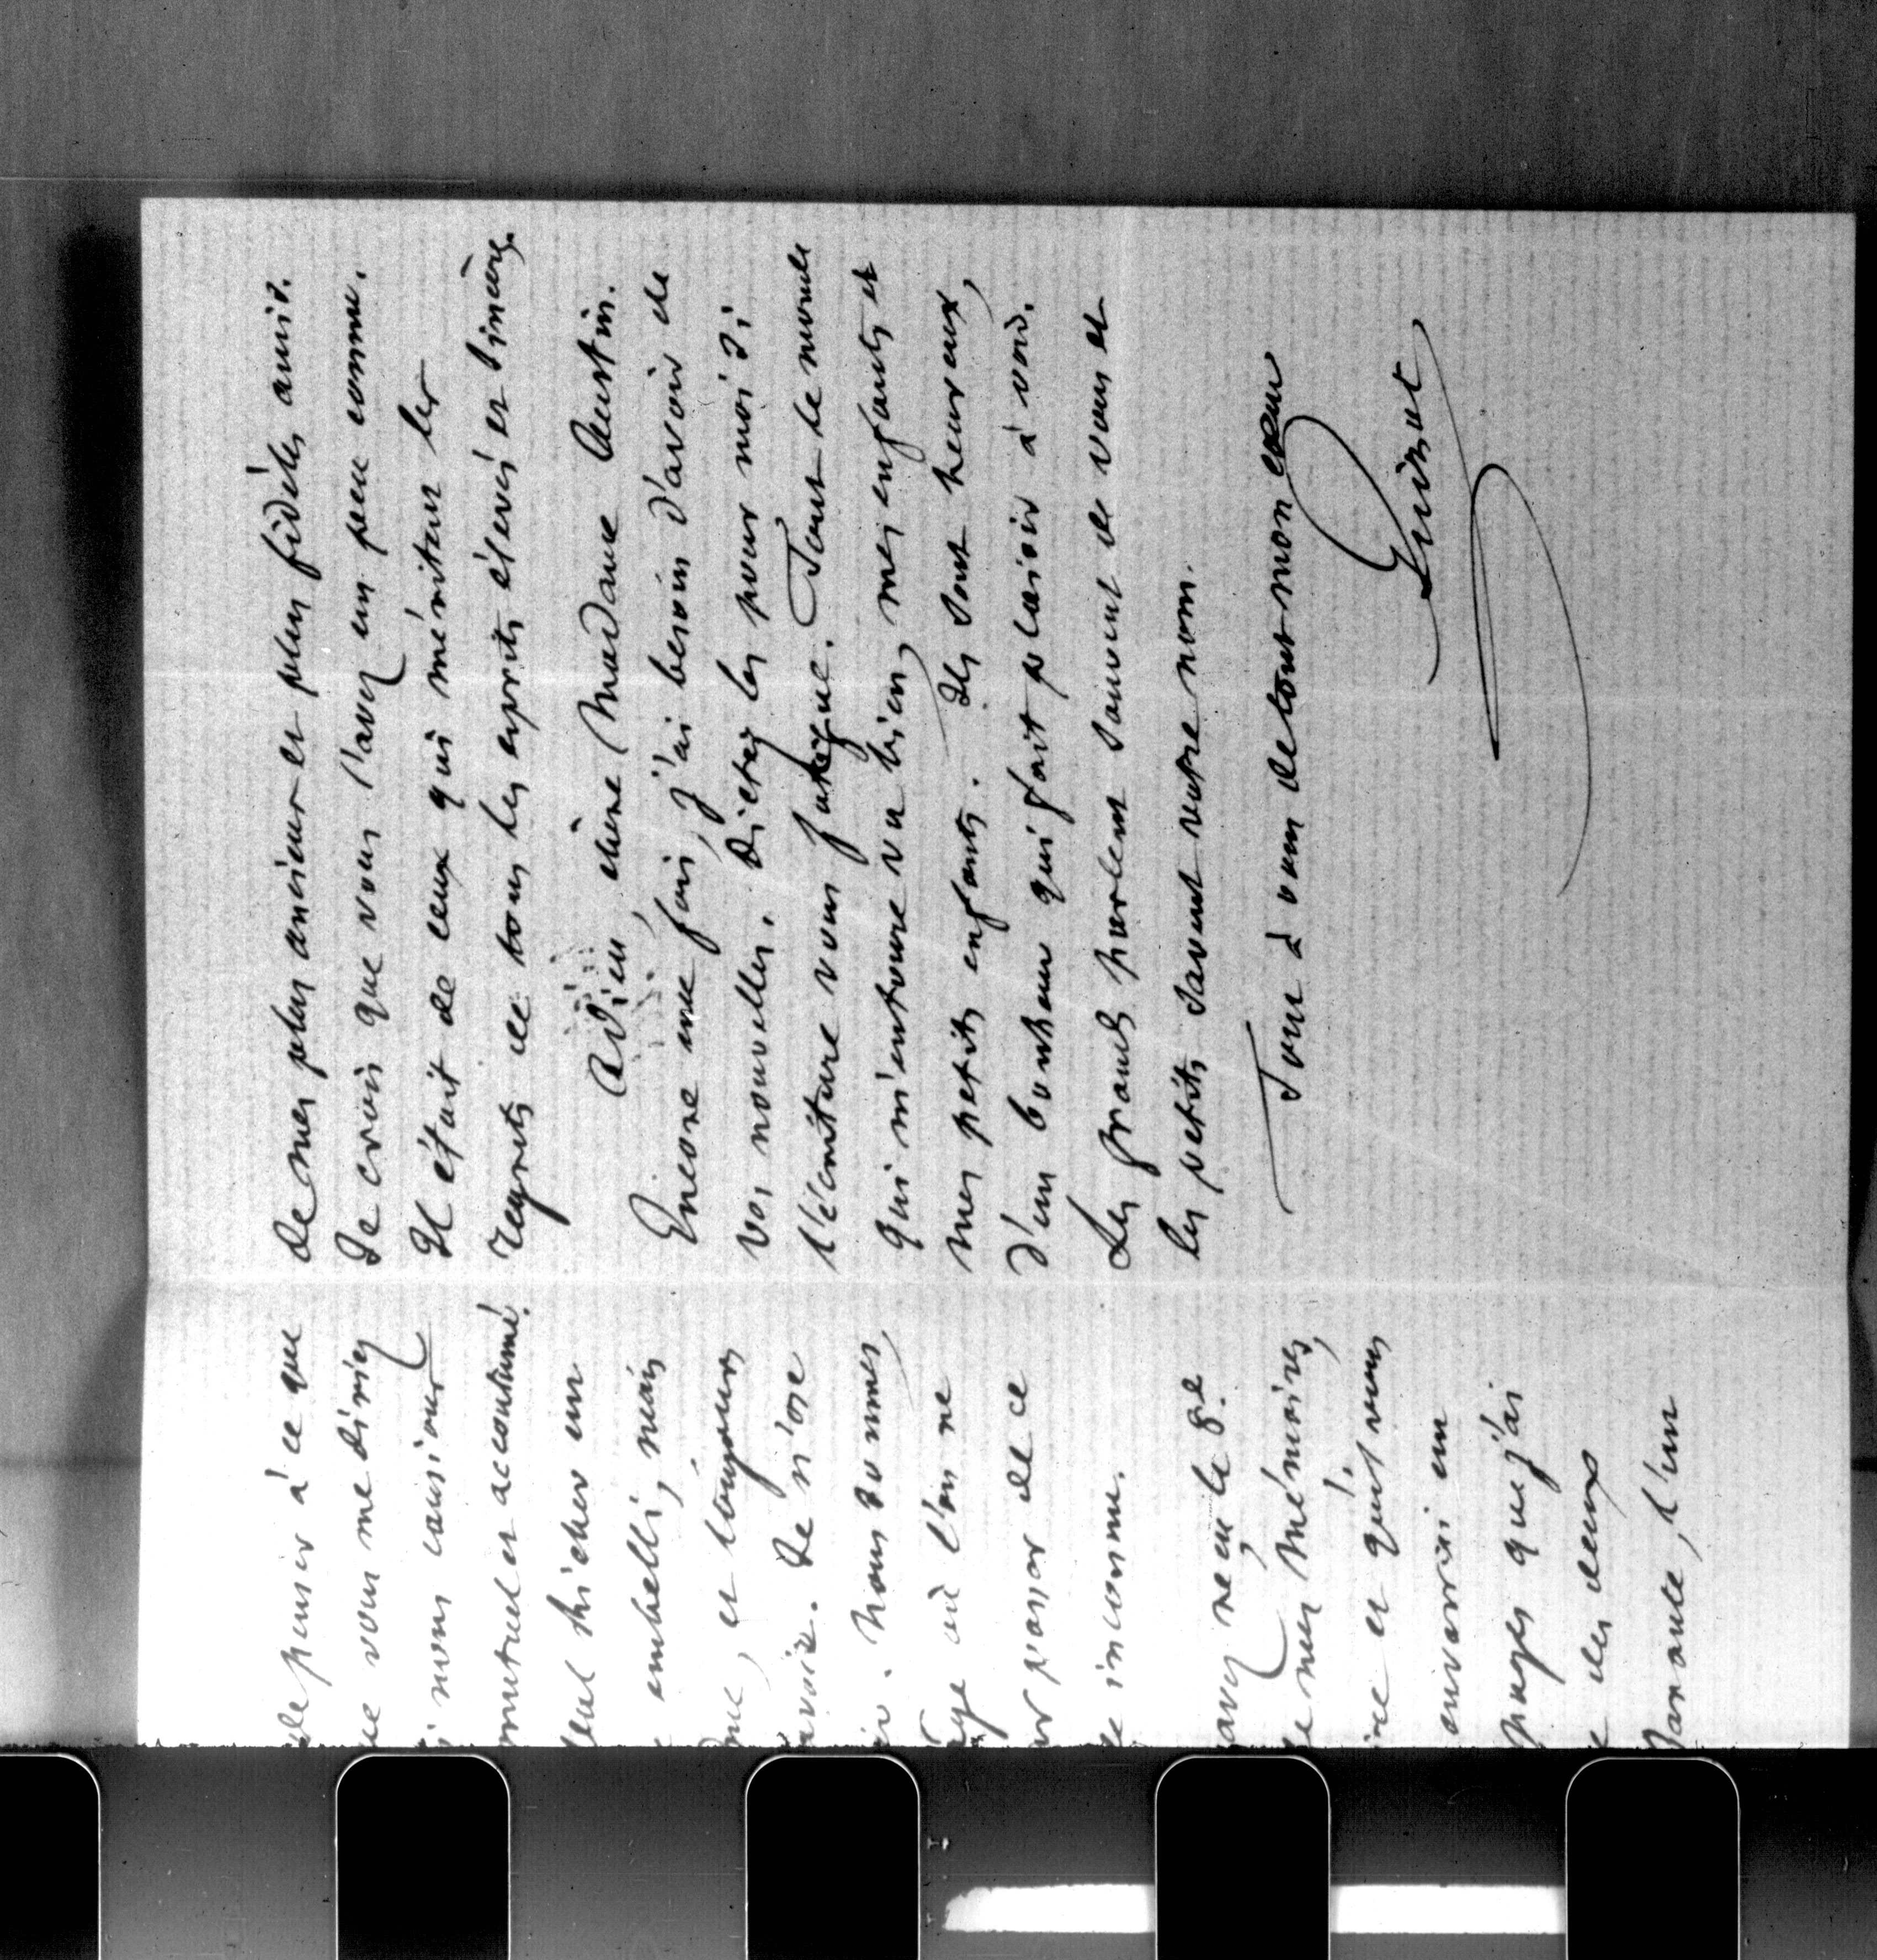 de penser à ce que
que vous me disiez
si nous causions
mutuel et accoutumé.
seul bicher un
embelli, mais
me, et toujours
avoir. Je n'ose
Nous sommes,
âge où l'on ne
passer de ce
inconnu.
avez reçu le 8e
de mes Mémoires,
et quil vous
enverrai un
pages que j'ai
des deux
Ante, l'un
de mes plus anciens et plus fidèles amis.
Je crois que vous l'avez un peu connu.
Il était de ceux qui méritent les
regrets de tous les esprits élevés et sincères.
Adieu, chère Madame Austin.
Encore une fois, j'ai besoin d'avoir de
vos nouvelles. Dictez les pour moi si
l'écriture vous fatigue. Tout le monde
qui m'entoure va bien, mes enfants et
mes petits enfants. Ils sont heureux,
d'un bonheur qui fait plaisir à voir.
Les grands parlent souvent de vous et
les petits savent votre nom.
Tout à vous de tout mon cœur
Guizot